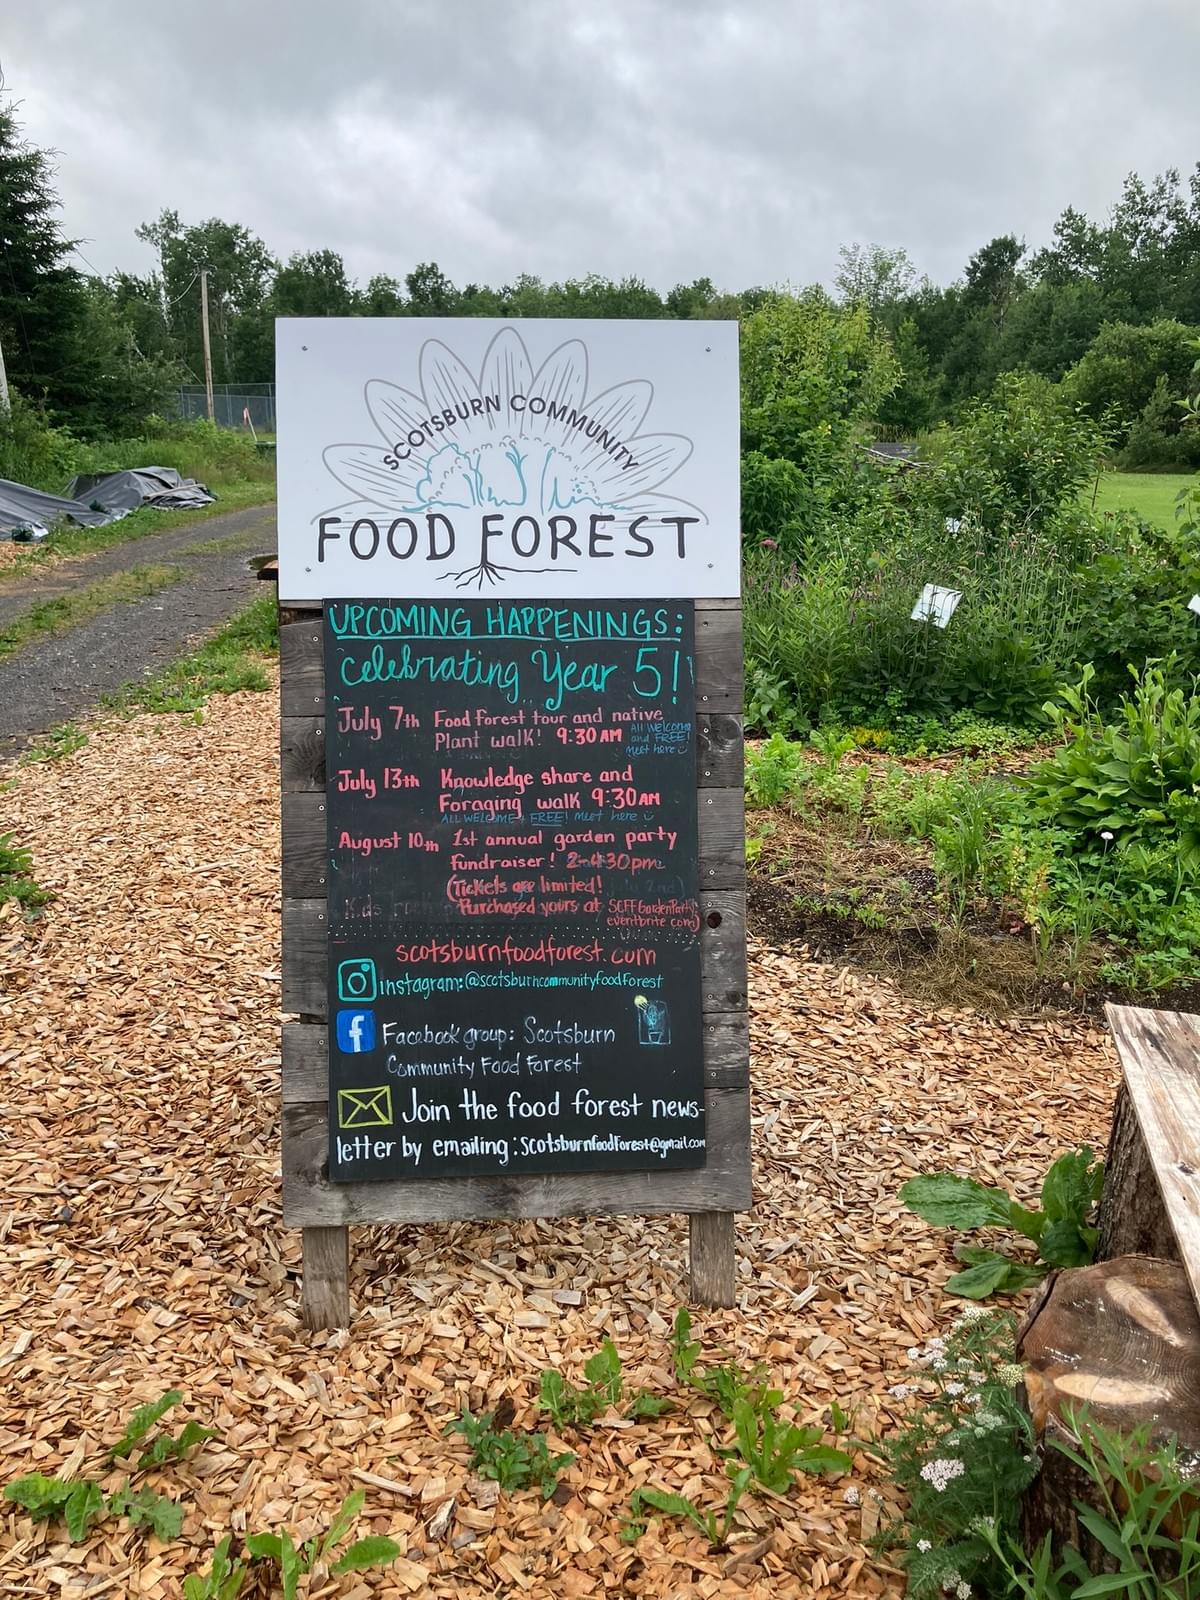 SCOTSBURN COMMUNITY
FOOD FOREST
UPCOMING HAPPENINGS:
celebrating Year 5!
July 7th Food forest tour and native
Plant walk! 9:30 AM
All welcome
and FREE!
meet here
July 13th Knowledge share and
Foraging walk 9:30 AM
ALL WELCOME + FREE! meet here
August 10th 1st annual garden party
fundraiser! 2-4:30pm
(Tickets are limited!
Purchased yours at SCFFGardenParty.
eventbrite.com)
Kids
July 2nd)
scotsburnfoodforest.com
instagram: @scotsburncommunityfoodforest
f Facebook group: Scotsburn
Community Food Forest
Join the food forest news-
letter by emailing: scotsburnfoodforest@gmail.com